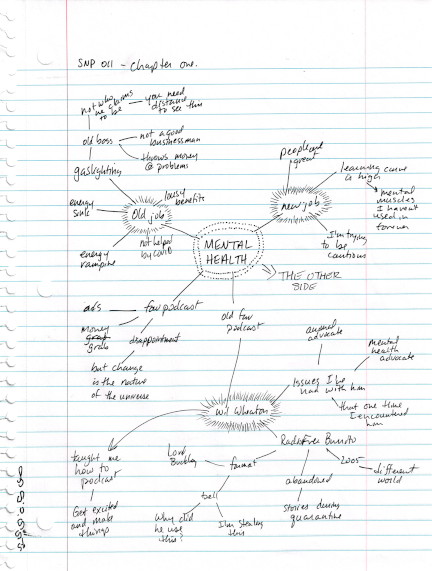 SNP 011 - Chapter one.
not who
he claims
to be
you need
distance
to see this
old boss
not a good
businessman
throws money
@ problems
gaslighting
people are
great
learning curve
is high
mental
muscles
I haven't
used in
forever
energy
suck
lousy
benefits
Old job
new job
energy
vampire
not helped
by COVID
MENTAL
HEALTH
I'm trying
to be
cautious
THE OTHER
SIDE
ads
fav podcast
old fav
podcast
money
grab
disappointment
but change
is the nature
of the universe
animal
advocate
mental
health
advocate
Issues I've
had with him
that one time
I encountered
him
Wil Wheaton
Radio Free Burrito
taught me
how to
podcast
Lord
Buckley
format
2005
different
world
abandoned
bell
stories during
quarantine
Get excited
and make
things
Why did
he use
this?
I'm stealing
this